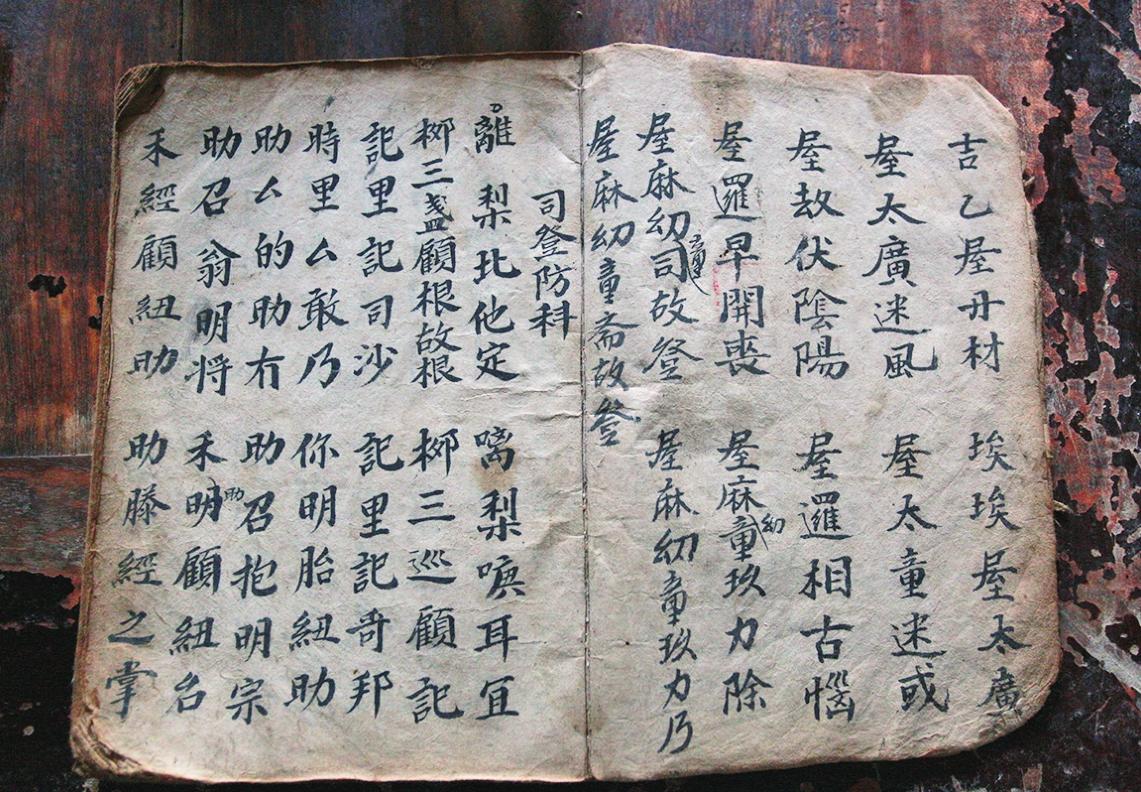 吉乙屋丹材 埃埃屋太廣
屋太廣迷風 屋太童迷或
屋故伏陰陽 屋邏相古惱
屋邏早開喪 屋麻童幼玖力除
屋麻幼司童故登 屋麻幼童玖力乃
屋麻幼童斋故登
司登防科
離梨比他定 嚟梨唤耳宜
梆三盏顧根故根 梆三巡顧記
記里記司沙 記里記奇邦
時里厶敢乃 你明胎紐助
助厶的助冇 助召抱明宗
助召翁明将 禾明助顧紐名
禾經顧紐助 助滕經之掌